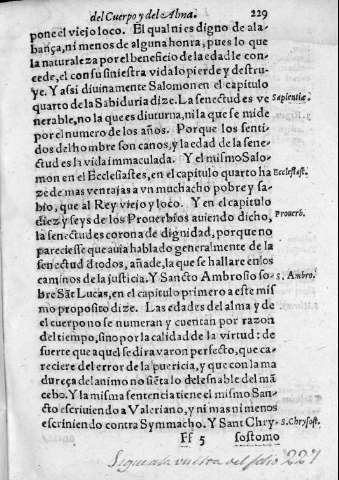 del Cuerpo y del Alma. 229
pone el viejo loco. El qual ni es digno de ala-
bança, ni menos de alguna honra, pues lo que
la naturaleza por el beneficio de la edad le con-
cede, el con su siniestra vida lo pierde y destru-
ye. Y assi diuinamente Salomon en el capitulo
quarto de la Sabiduria dize. La senectud es ve Sapientiæ.
nerable, no la que es diuturna, ni la que se mide
por el numero de los años. Porque los senti-
dos del hombre son canos, y la edad de la sene-
ctud es la vida immaculada. Y el mismo Salo-
mon en el Ecclesiastes, en el capitulo quarto ha Ecclesiast.
ze de mas ventajas a vn muchacho pobre y sa-
bio, que al Rey viejo y loco. Y en el capitulo
diez y seys de los Prouerbios auiendo dicho, Prouerb.
la senectud es corona de dignidad, porque no
pareciesse que auia hablado generalmente de la
senectud d todos, añade, la que se hallare en los
caminos de la justicia. Y Sancto Ambrosio so- S. Ambro.
bre Sãt Lucas, en el capitulo primero a este mis
mo proposito dize. Las edades del alma y de
el cuerpo no se numeran y cuentan por razon
del tiempo, sino por la calidad de la virtud: de
suerte que aquel se dira varon perfecto, que ca-
reciere del error de la puericia, y que con la ma
dureça del animo no siẽta lo delesnable del mã
cebo. Y la misma sentencia tiene el mismo San-
cto escriuiendo a Valeriano, y ni mas ni menos
escriuiendo contra Symmacho. Y Sant Chry- S. Chrysost.
Ff 5 sostomo
Sigue a la vuelta del folio 227